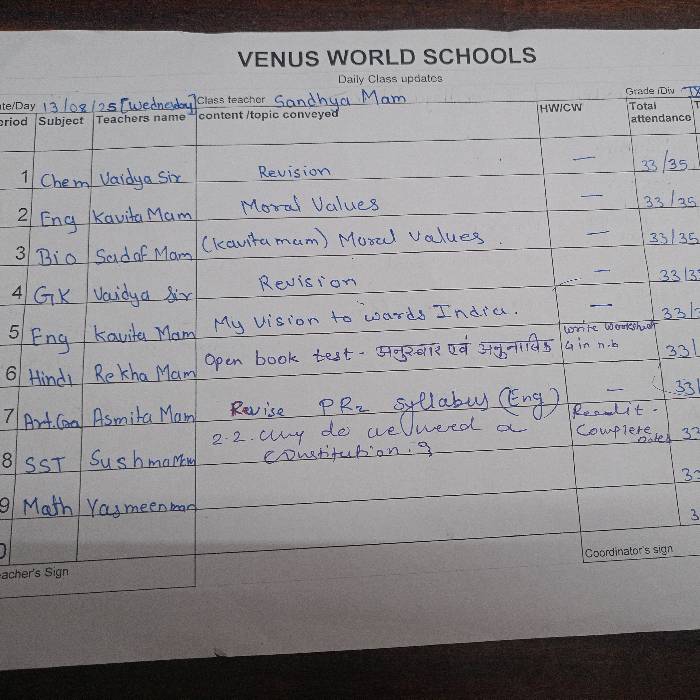 VENUS WORLD SCHOOLS
Daily Class updates
ate/Day 13/08/25 [Wednesday] Class teacher Sandhya Mam Grade /Div
eriod Subject Teachers name content /topic conveyed HW/CW Total attendance T
1 Chem Vaidya Sir Revision — 33/35
2 Eng Kavita Mam Moral Values — 33/35
3 Bio Sadaf Mam (Kavita mam) Moral values. — 33/35
4 GK Vaidya Sir Revision — 33/3
5 Eng Kavita Mam My vision to wards India. — 33/3
6 Hindi Rekha Mam Open book test - अनुस्वार एवं अनुनासिक write worksheet 33/
4 in n.b
7 Asmita Mam Revise PR2 syllabus (Eng) — 33/
8 SST Sushma Mam 2.2. why do we need a Read it. 33
constitution. ? Complete notes
9 Math Yasmeen mam 33
0 3
acher's Sign Coordinator's sign